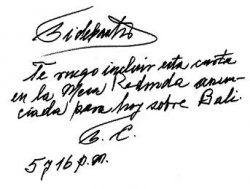 Te ruego incluir esta carta
en la Mesa Redonda anun-
ciada para hoy sobre Bali.
F. C.
5 y 16 p.m.